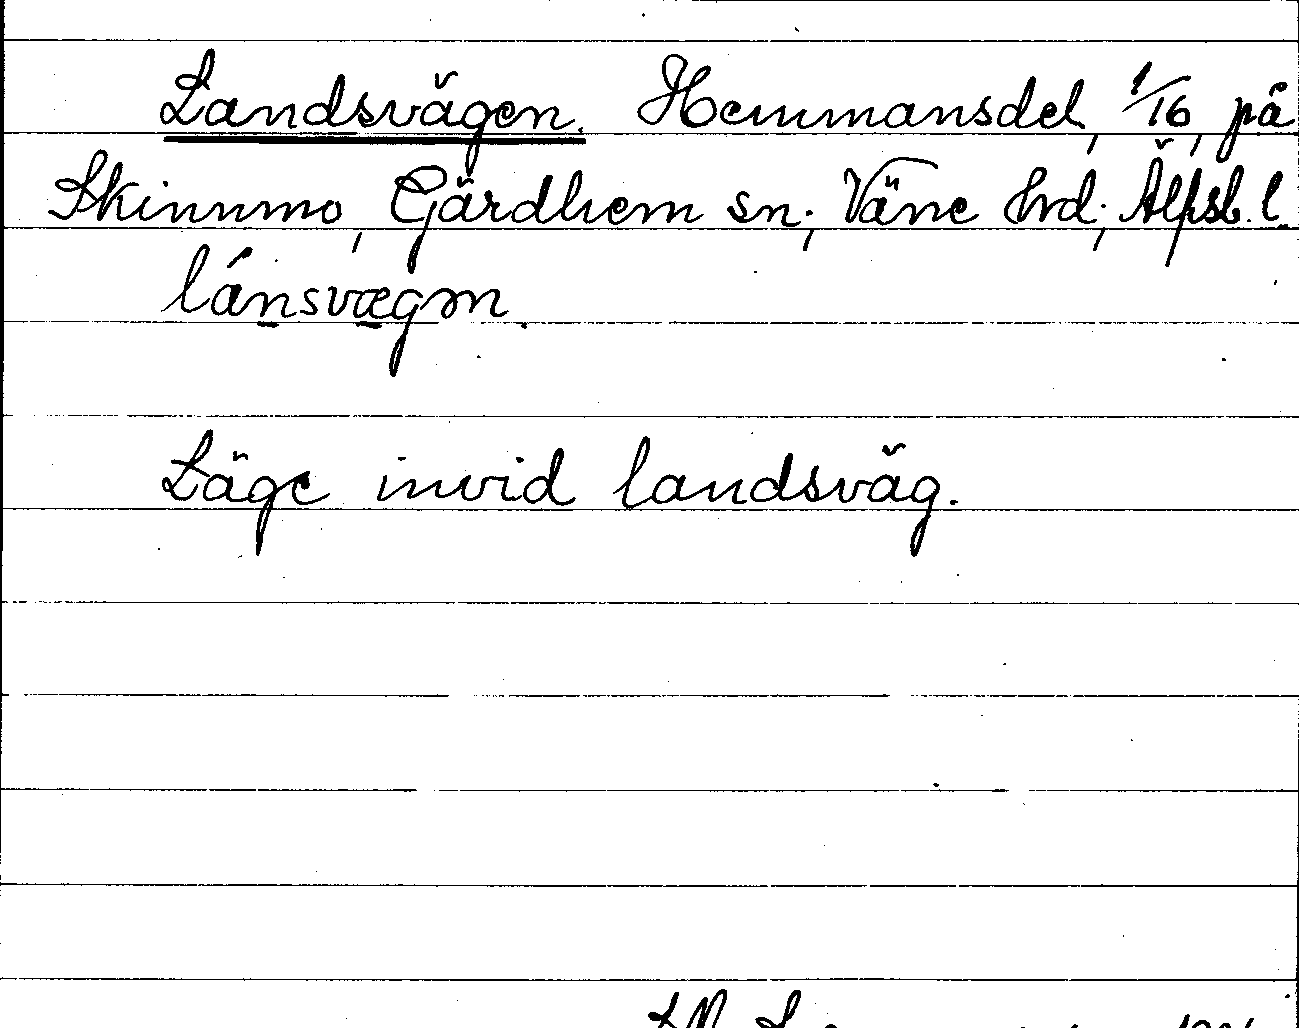 Landsvägen. Hemmansdel, 1/16, på
Skinnmo, Gärdhem sn; Väne hrd; Älfsb. l.
lánsvægm.
Läge invid landsväg.